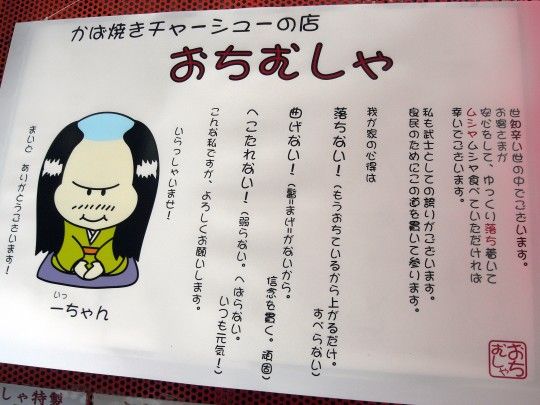 かば焼きチャーシューの店
おちむしゃ
世知辛い世の中でございます。
お客さまが
安心をして、ゆっくり落ち着いて
ムシャムシャ食べていただければ
幸いでございます。
私も武士としての誇りがございます。
良民のためにこの道を貫いて参ります。
我が家の心得は
落ちない!(もうおちているから上がるだけ。
すべらない)
曲げない!(髷=まげ=がないから。
信念を貫く。頑固)
へこたれない!(弱らない。へばらない。
いつも元気!)
こんな私ですが、よろしくお願いします。
いらっしゃいませ!
まいど ありがとうございます!
いっ
一ちゃん
おち
むしゃ
しゃ特製